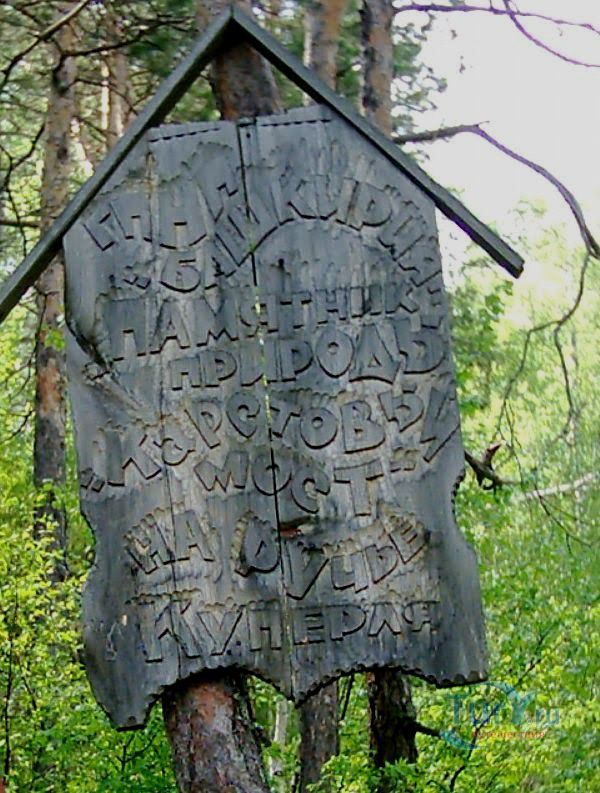 "БАШКИРИЯ"
ПАМЯТНИК
ПРИРОДЫ
"Карстовый
мост"
НА РУЧЬЕ
КУПЕРЛЯ